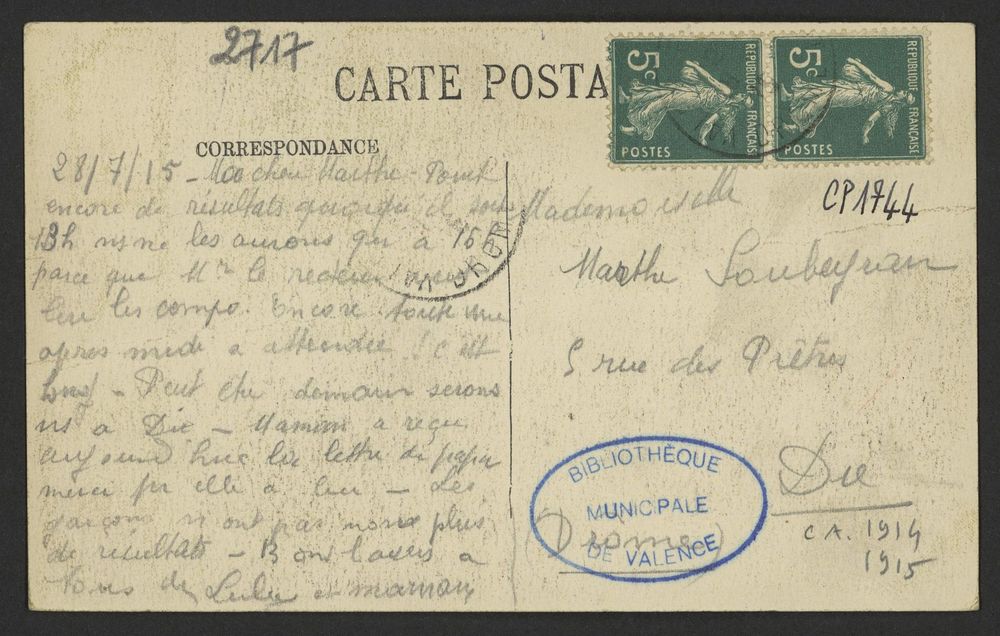 2717
CARTE POSTA
5c
REPUBLIQUE FRANÇAISE
POSTES
5c
REPUBLIQUE FRANÇAISE
POSTES
CP1744
CORRESPONDANCE
28/7/15 - Marthe - Point
encore de résultats quoiqu'il soit
13h ns ne les aurons qu'à 16h
parce que Mr le recteur veut
lire les compo. Encore toute une
après midi à attendre ! c'est
long - Peut être demain serons
ns à Die - Maman a reçu
aujourd'hui la lettre de papa
merci pr elle à - Les
garçons n'ont pas non plus
de résultats - Bons baisers à
tous de Lulu et maman
Mademoiselle
Marthe Soubeyran
5 rue des Prêtres
Die
(Drôme)
BIBLIOTHÈQUE
MUNICIPALE
DE VALENCE
CA. 1914
1915